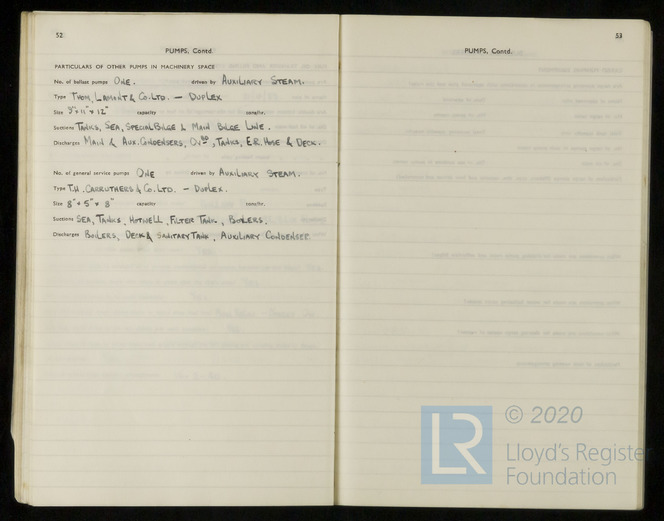 52
PUMPS, Contd.
PARTICULARS OF OTHER PUMPS IN MACHINERY SPACE
No. of ballast pumps ONE. driven by AUXILIARY STEAM.
Type THOM, LAMONT & CO. LTD. — DUPLEX
Size 9" × 11" × 12" capacity tons/hr.
Suctions TANKS, SEA, SPECIAL BILGE & MAIN BILGE LINE.
Discharges MAIN & AUX. CONDENSERS, OVBD, TANKS, E.R. HOSE & DECK.
No. of general service pumps ONE driven by AUXILIARY STEAM.
Type T.H. CARRUTHERS & CO. LTD. — DUPLEX.
Size 8" × 5" × 8" capacity tons/hr.
Suctions SEA, TANKS, HOTWELL, FILTER TANK, BOILERS.
Discharges BOILERS, DECK & SANITARY TANK, AUXILIARY CONDENSER
53
PUMPS, Contd.
LR
© 2020
Lloyd's Register
Foundation